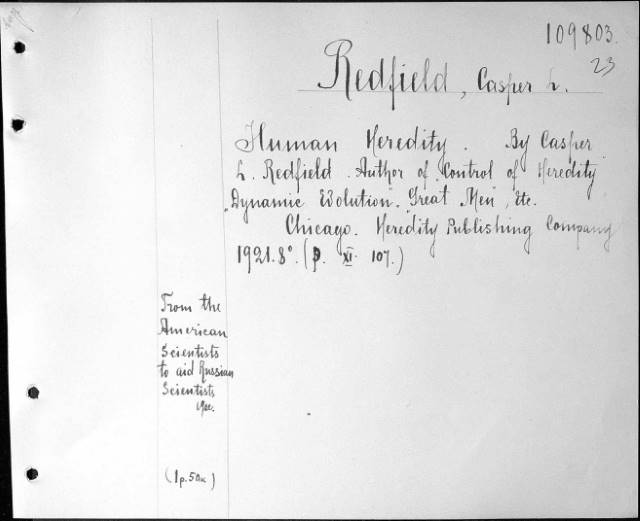 109803.
23
Redfield, Casper L.
Human Heredity. By Casper
L. Redfield. Author of "Control of Heredity
"Dynamic Evolution". "Great Men", Etc.
Chicago. Heredity Publishing Company
1921. 8°. (p. XI. 107.)
From the
American
Scientists
to aid Russian
Scientists
(1p.50к)